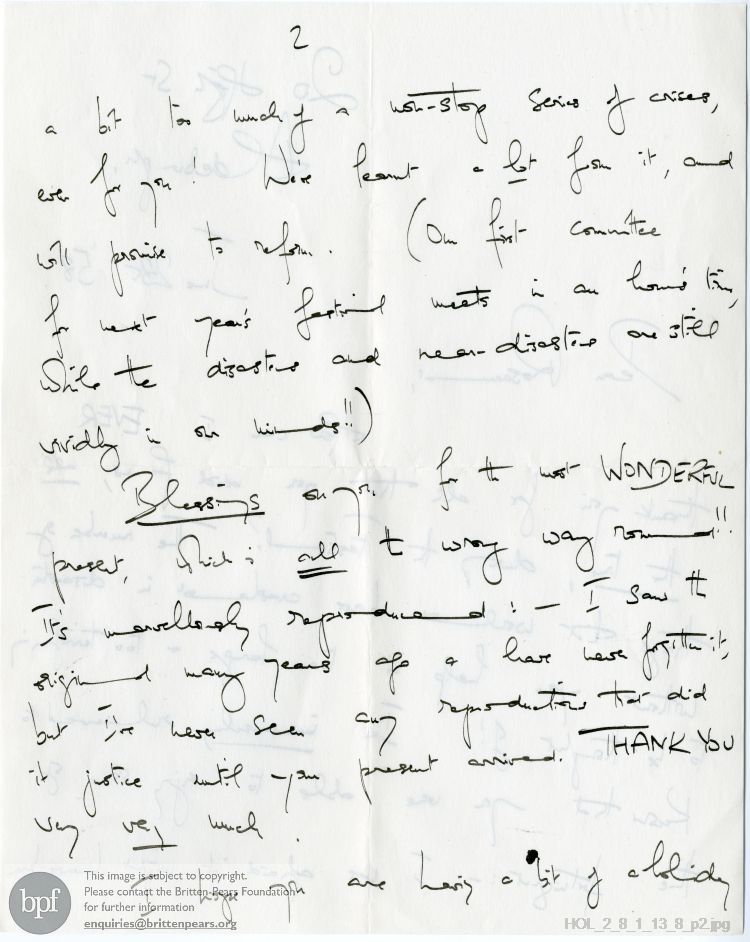 2
a bit too much of a non-stop series of crises,
even for you! We've learnt a lot from it, and
will promise to reform. (Our first committee
for next year's festival meets in an hour's time,
while the disasters and near-disasters are still
vividly in our minds!!)
Blessings on you for the most WONDERFUL
present, which is all the wrong way round!!
It's marvellously reproduced! — I saw the
original many years ago & have never forgotten it,
but I've never seen any reproductions that did
it justice until your present arrived. THANK YOU
very very much.
I hope you are having a bit of a holiday
bpf
This image is subject to copyright.
Please contact the Britten-Pears Foundation
for further information
enquiries@brittenpears.org
HOL_2_8_1_13_8_p2.jpg